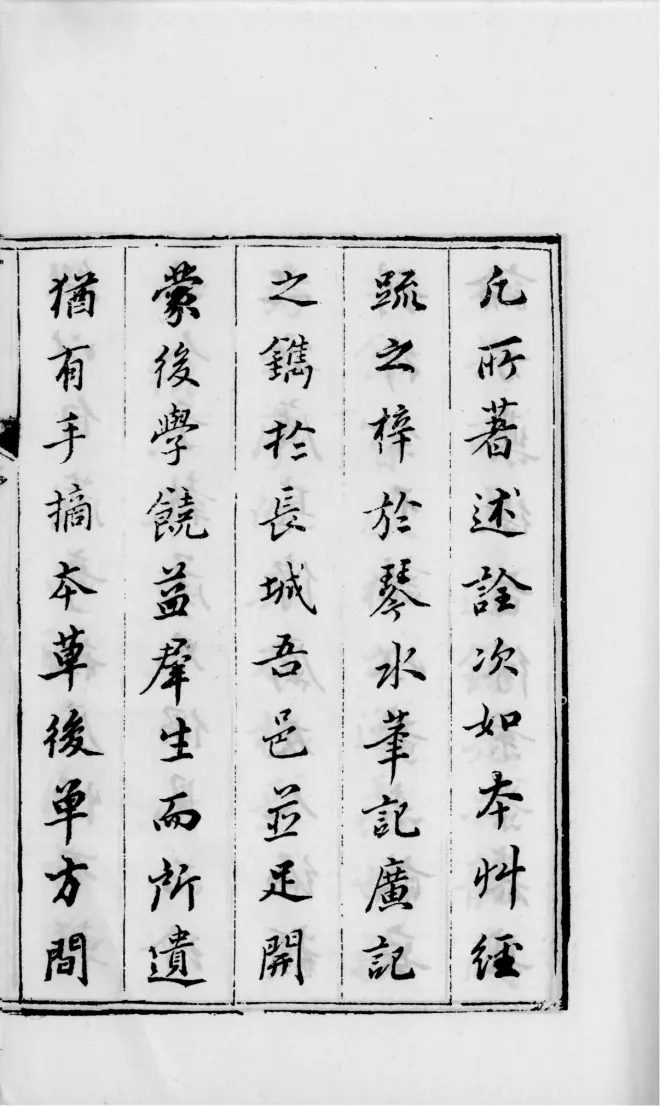 凡所著述詮次如本艸經
疏之梓於琴水茟記廣記
之鐫於長城吾邑並足開
蒙後學饒益羣生而所遺
猶有手摘本草後单方間